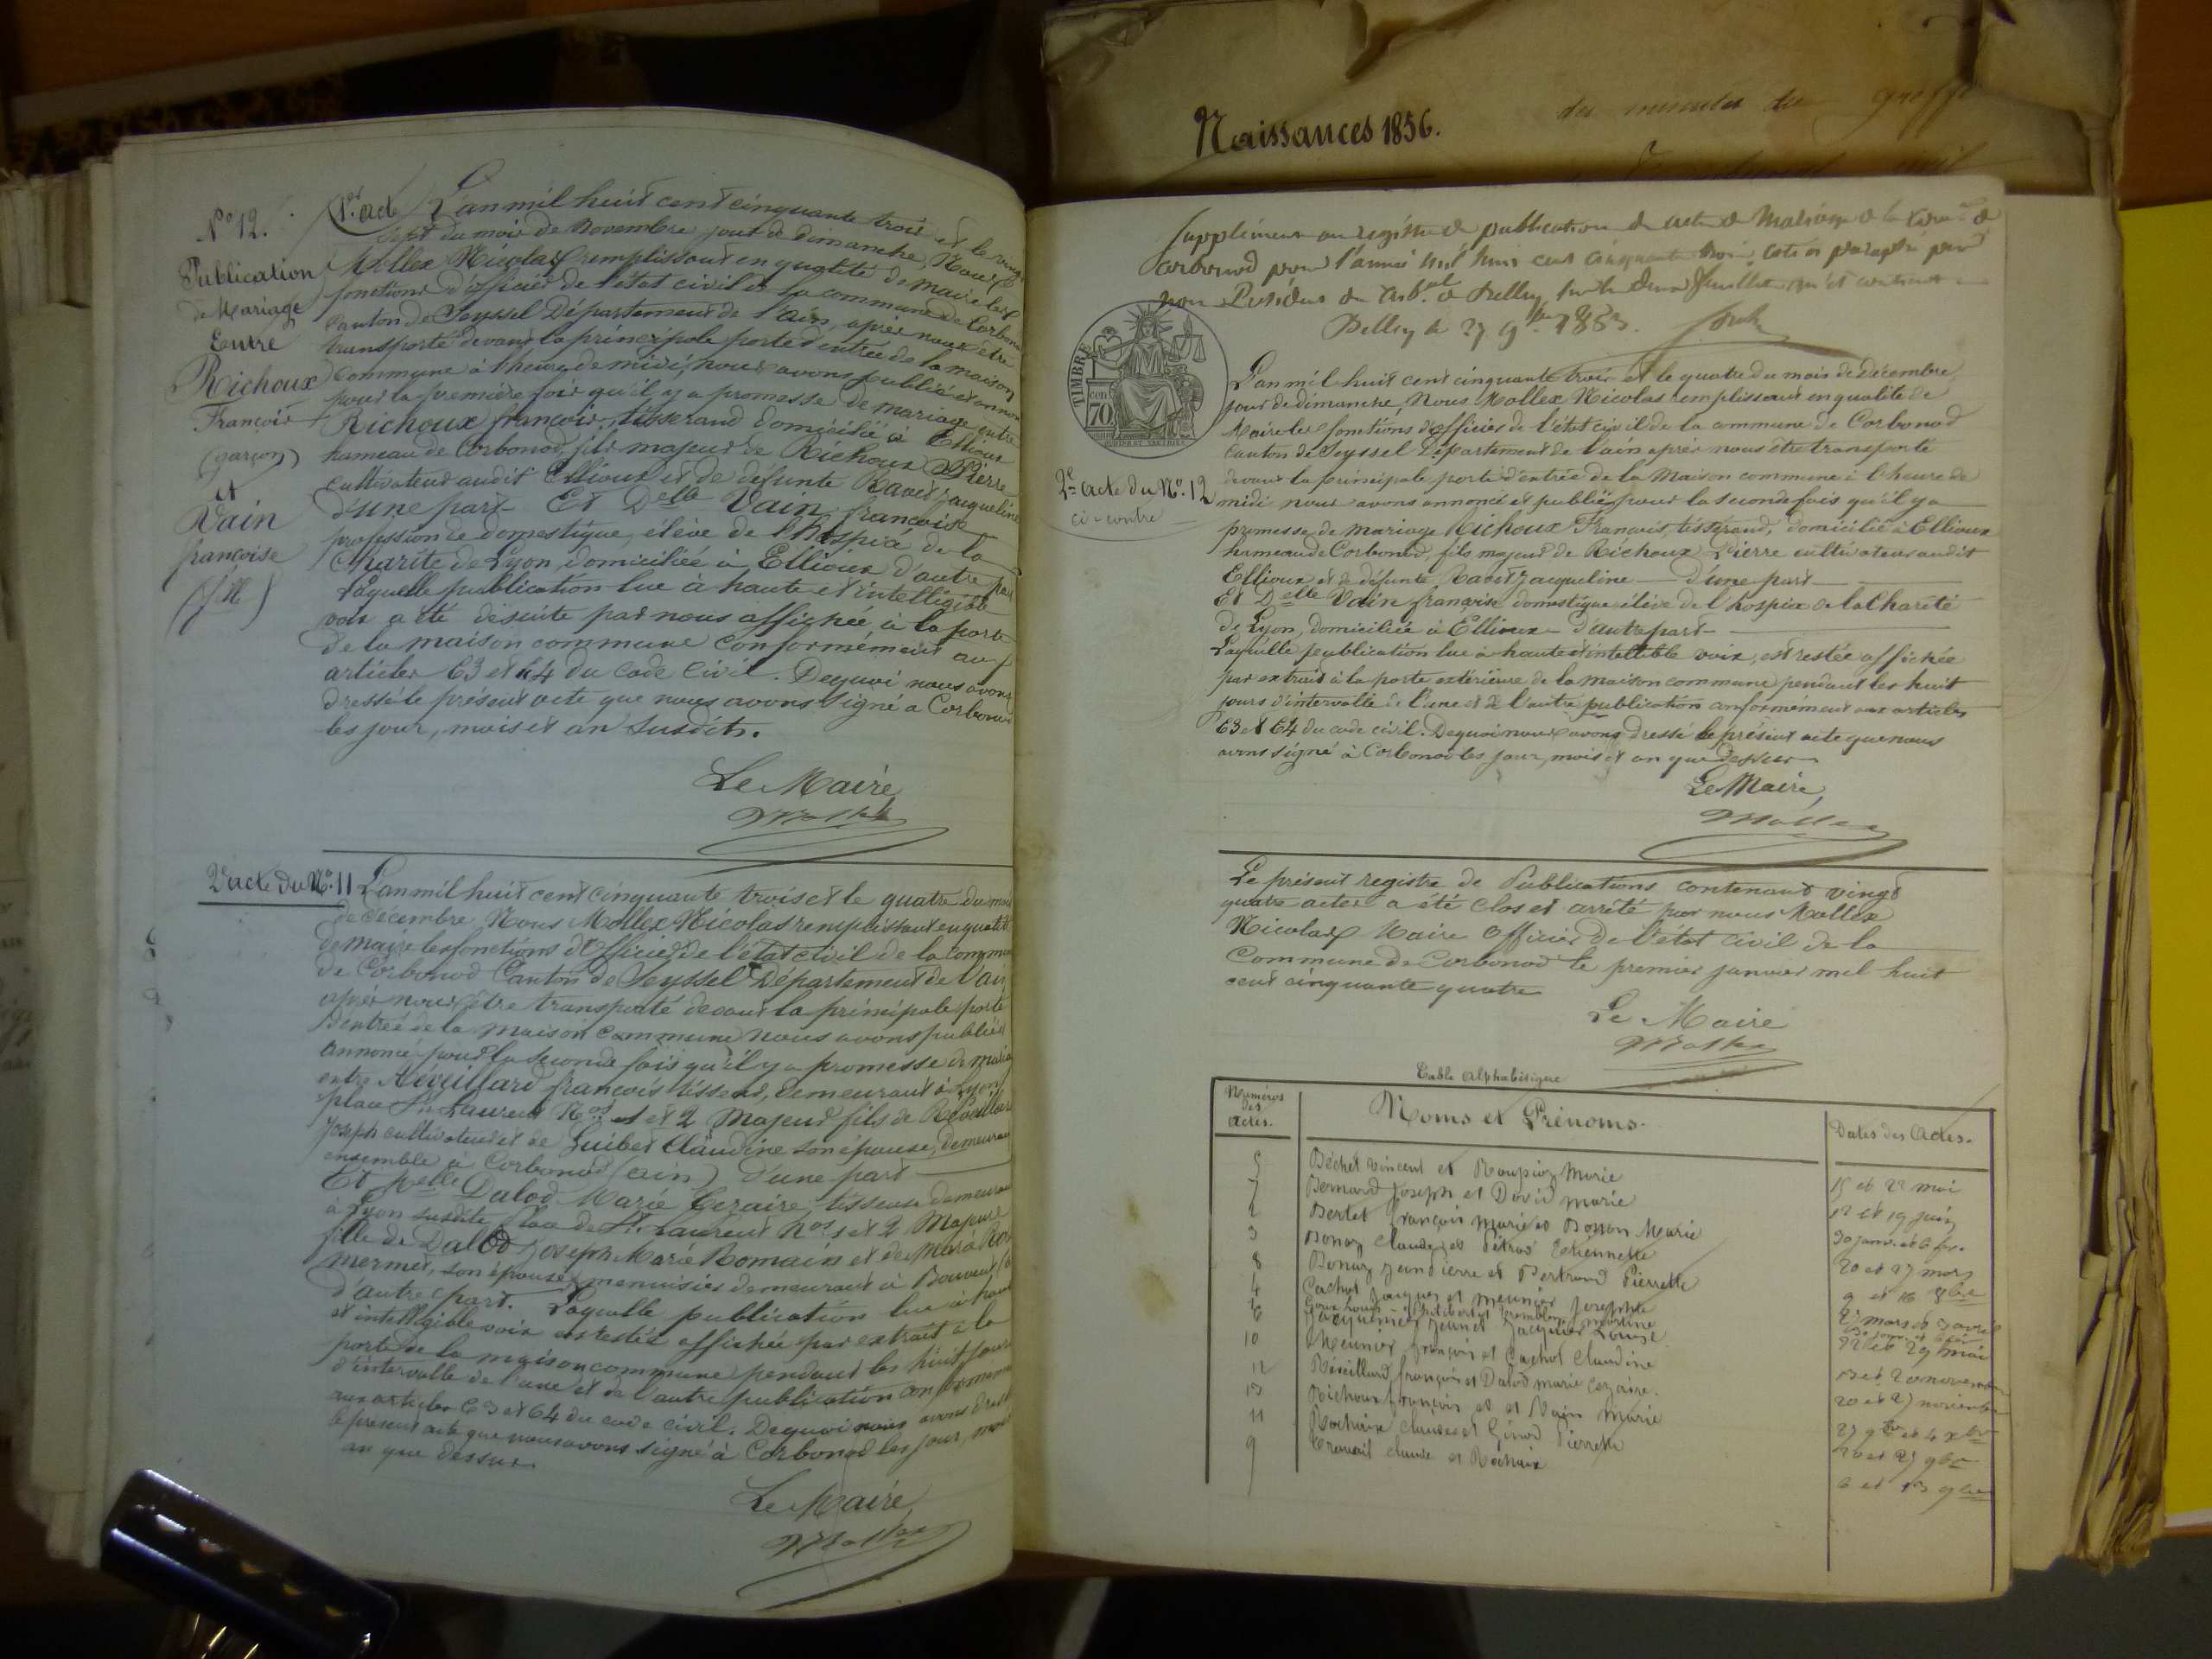 N° 12.
Publication
de Mariage
Entre
Richoux
François
(garçon)
et
Vain
françoise
(fille)
1er acte L'an mil huit cent cinquante trois et le vingt
sept du mois de Novembre jour de dimanche, Nous
Mollex Nicolas remplissant en qualité de maire les
fonctions d'officier de l'état civil de la commune de Corbonod
Canton de Seyssel Département de l'Ain, après nous être
transporté devant la principale porte d'entrée de la maison
commune à l'heure de midi, nous avons publié et annoncé
pour la première fois qu'il y a promesse de mariage entre
Richoux françois, tisserand domicilié à Ellioux
hameau de Corbonod, fils majeur de Richoux Pierre
cultivateur audit Ellioux et de défunte Ravet Jacqueline
d'une part - Et Delle Vain françoise
profession de domestique, élève de l'hospice de la
Charité de Lyon, domiciliée à Ellioux d'autre part
Laquelle publication lue à haute et intelligible
voix a été de suite par nous affichée à la porte
de la maison commune conformément aux
articles 63 et 64 du code civil. De quoi nous avons
dressé le présent acte que nous avons signé à Corbonod
les jour, mois et an susdits.
Le Maire
Mollex
2e acte du N°. 11 L'an mil huit cent cinquante trois et le quatre du mois
de décembre, Nous Mollex Nicolas remplissant en qualité
de maire les fonctions d'Officier de l'état civil de la commune
de Corbonod Canton de Seyssel Département de l'Ain
après nous être transporté devant la principale porte
d'entrée de la maison commune nous avons publié et
annoncé pour la seconde fois qu'il y a promesse de mariage
entre Réveillard françois tisseur, demeurant à Lyon
place St. Laurent Nos 1 et 2 Majeur fils de Réveillard
Joseph cultivateur et de Guibet Claudine son épouse, demeurant
ensemble à Corbonod (ain) d'une part
Et Delle Dalod Marie Cezaire, tisseuse demeurant
à Lyon susdite place de St. Laurent Nos 1 et 2 Majeure
fille de Dalod Joseph Marie Romain et de
mermet, son épouse, menuisier demeurant à Bouvent
d'autre part. Laquelle publication lue à haute
et intelligible voix est restée affichée par extrait à la
porte de la maison commune pendant les huit jours
d'intervalle de l'une et de l'autre publication conformément
aux articles 63 et 64 du code civil. De quoi nous avons dressé
le présent acte que nous avons signé à Corbonod les jour, mois
an que dessus.
Le Maire,
Mollex
Naissances 1856.
des minutes du greffe
Supplément au registre de publication de acte de Mariage de la Comne de
Corbonod pour l'année mil huit cent cinquante trois, coté et paraphé par
nous Président du tribal de Belley
Belley le 27 9bre 1853.
TIMBRE
70
cen
2e acte du N°. 12
ci-contre
L'an mil huit cent cinquante trois et le quatre du mois de décembre,
jour de dimanche, Nous Mollex Nicolas remplissant en qualité de
Maire les fonctions d'officier de l'état civil de la commune de Corbonod
Canton de Seyssel Département de l'ain après nous être transporté
devant la principale porte d'entrée de la Maison commune à l'heure de
midi nous avons annoncé et publié pour la seconde fois qu'il y a
promesse de mariage Richoux François, tisserand, domicilié à Ellioux
hameau de Corbonod, fils majeur de Richoux Pierre cultivateur audit
Ellioux et de défunte Ravet Jacqueline - d'une part
Et Delle Vain françoise domestique, élève de l'hospice de la Charité
de Lyon, domiciliée à Ellioux - d'autre part -
Laquelle publication lue à haute et intellible voix, est restée affichée
par extrait à la porte extérieure de la maison commune pendant les huit
jours d'intervalle de l'une et de l'autre publication conformément aux articles
63 et 64 du code civil. De quoi nous avons dressé le présent acte que nous
avons signé à Corbonod les jour, mois et an que dessus
Le Maire,
Mollex
Le présent registre de Publications contenant vingt
quatre actes a été clos et arrêté par nous Mollex
Nicolas Maire Officier de l'état civil de la
Commune de Corbonod le premier janvier mil huit
cent cinquante quatre
Le Maire
Mollex
Table Alphabétique
Numéros des Actes. Noms et Prénoms. Dates des Actes.
5 Béchet Vincent et Marie 15 et 22 mai
7 Bernard Joseph et David marie 12 et 19 juin
2 Bertet François Marie et Bosson Marie 30 janv. et 6 fev.
3 Bonaz Claude et Pétras Etiennette 20 et 27 mars
8 Bonaz Jean Pierre et Bertrand Pierrette 9 et 16 8bre
4 Cachot Jacques et Meunier Josephte 27 mars et 3 avril
6 Jacquemier Jean et Jacquier Louise 22 et 29 mai
10 Meunier françois et Cachot Claudine 13 et 20 novembre
12 Réveillard françois et Dalod marie Cezaire. 20 et 27 novembre
13 Richoux françois et et Vain Marie 27 9bre et 4 xbre
11 Rochaix Claude et Girod Pierrette 20 et 27 9bre
9 Travail Claude et Rochaix 6 et 13 9bre